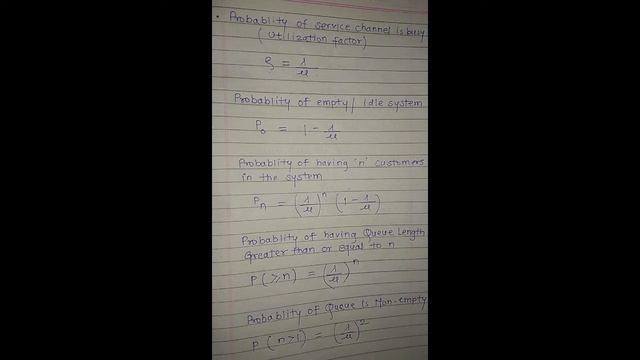 • Probablity of service channel is busy
(Utilization factor)
ρ = λ/μ
Probablity of empty/ Idle system
P₀ = 1 - λ/μ
Probablity of having 'n' customers
in the system
Pn = (λ/μ)ⁿ (1 - λ/μ)
Probablity of having Queue Length
Greater than or equal to n
P(≥n) = (λ/μ)ⁿ
Probablity of Queue is Non-empty
P(n>1) = (λ/μ)²